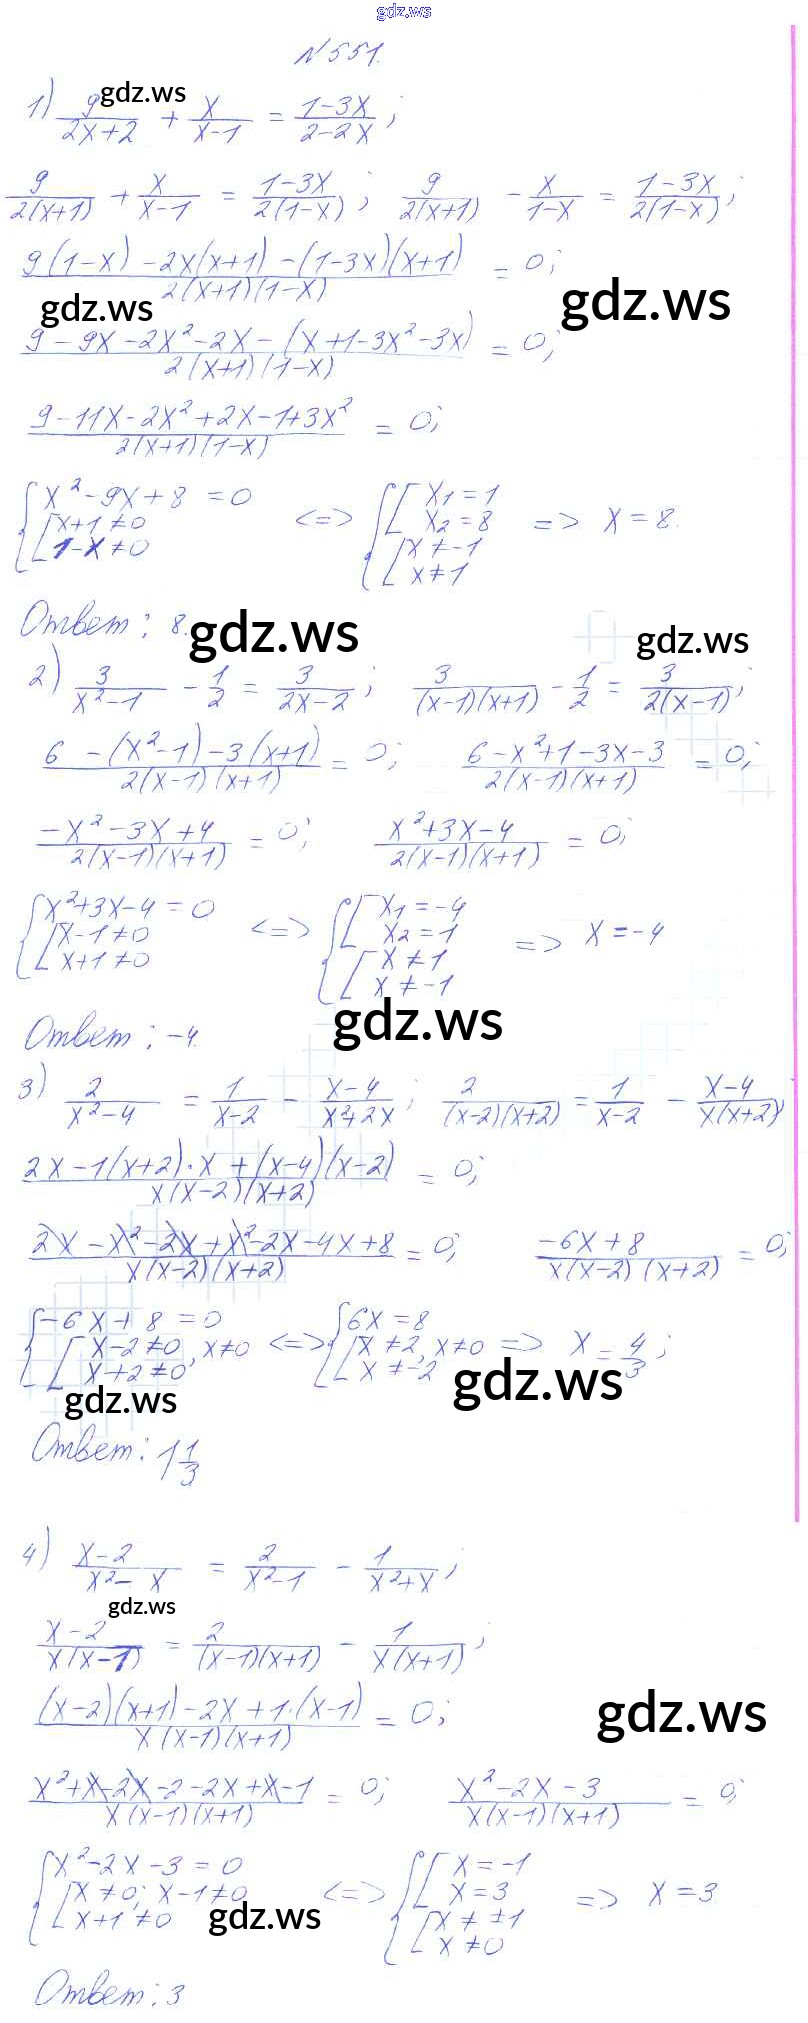 gdz.ws
N 551.
1) 9/(2x+2) + x/(x-1) = (1-3x)/(2-2x);
gdz.ws
9/(2(x+1)) + x/(x-1) = (1-3x)/(2(1-x)); 9/(2(x+1)) - x/(1-x) = (1-3x)/(2(1-x));
(9(1-x) - 2x(x+1) - (1-3x)(x+1))/(2(x+1)(1-x)) = 0;
gdz.ws
gdz.ws
(9 - 9x - 2x² - 2x - (x+1-3x²-3x))/(2(x+1)(1-x)) = 0;
(9-11x-2x²+2x-1+3x²)/(2(x+1)(1-x)) = 0;
{ x²-9x+8 = 0 [ x+1≠0 1-x≠0 <=> { [ x₁=1 x₂=8 [ x≠-1 x≠1 => x=8.
Ответ: 8.
gdz.ws
gdz.ws
2) 3/(x²-1) - 1/2 = 3/(2x-2); 3/((x-1)(x+1)) - 1/2 = 3/(2(x-1));
(6 - (x²-1) - 3(x+1))/(2(x-1)(x+1)) = 0; (6-x²+1-3x-3)/(2(x-1)(x+1)) = 0;
(-x²-3x+4)/(2(x-1)(x+1)) = 0; (x²+3x-4)/(2(x-1)(x+1)) = 0;
{ x²+3x-4=0 [ x-1≠0 x+1≠0 <=> { [ x₁=-4 x₂=1 [ x≠1 x≠-1 => x=-4
Ответ: -4.
gdz.ws
3) 2/(x²-4) = 1/(x-2) - (x-4)/(x²+2x); 2/((x-2)(x+2)) = 1/(x-2) - (x-4)/(x(x+2));
(2x-1(x+2)·x+(x-4)(x-2))/(x(x-2)(x+2)) = 0;
(2x-x²-2x+x²-2x-4x+8)/(x(x-2)(x+2)) = 0; (-6x+8)/(x(x-2)(x+2)) = 0;
{ -6x+8=0 [ x-2≠0 x+2≠0, x≠0 <=> { 6x=8 [ x≠2 x≠-2, x≠0 => x=4/3;
gdz.ws
gdz.ws
Ответ: 1 1/3
4) (x-2)/(x²-x) = 2/(x²-1) - 1/(x²+x);
gdz.ws
(x-2)/(x(x-1)) = 2/((x-1)(x+1)) - 1/(x(x+1));
((x-2)(x+1)-2x+1·(x-1))/(x(x-1)(x+1)) = 0;
gdz.ws
(x²+x-2x-2-2x+x-1)/(x(x-1)(x+1)) = 0; (x²-2x-3)/(x(x-1)(x+1)) = 0;
{ x²-2x-3=0 [ x≠0; x-1≠0 x+1≠0 <=> { [ x=-1 x=3 [ x≠±1 x≠0 => x=3
gdz.ws
Ответ: 3